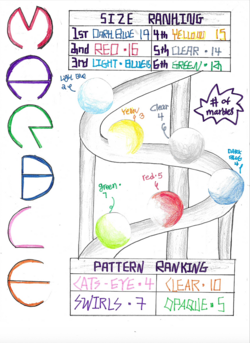 MARBLE
SIZE RANKING
1st DARK BLUE 19 4th YELLOW 15
2nd RED • 16 5th CLEAR • 14
3rd LIGHT • BLUE 6th GREEN •
light blue
yellow 3
clear 4
# of marbles
dark blue
red • 5
green •
PATTERN RANKING
CATS - EYE • 4 CLEAR • 10
SWIRLS • 7 OPAQUE • 5